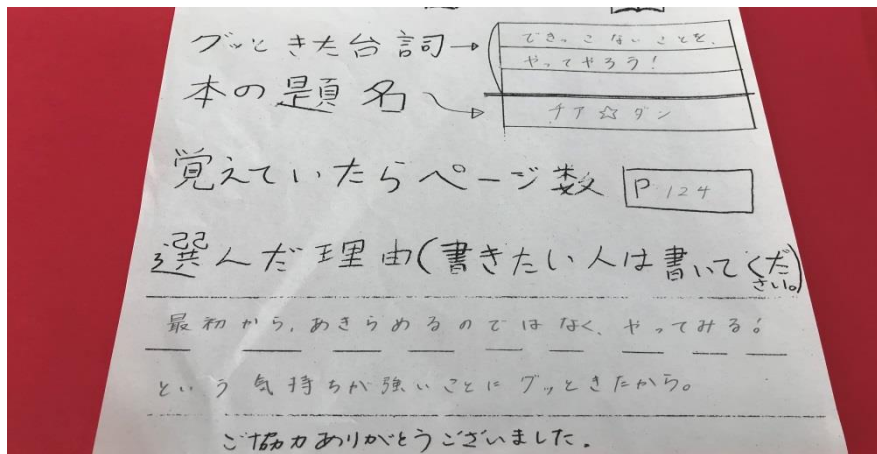 グッときた台詞→ できっこないことを、
やってやろう！
本の題名 チア☆ダン
覚えていたらページ数 P 124
選んだ理由(書きたい人は書いてください。)
最初から、あきらめるのではなく、やってみる！
という気持ちが強いことにグッときたから。
ご協力ありがとうございました。